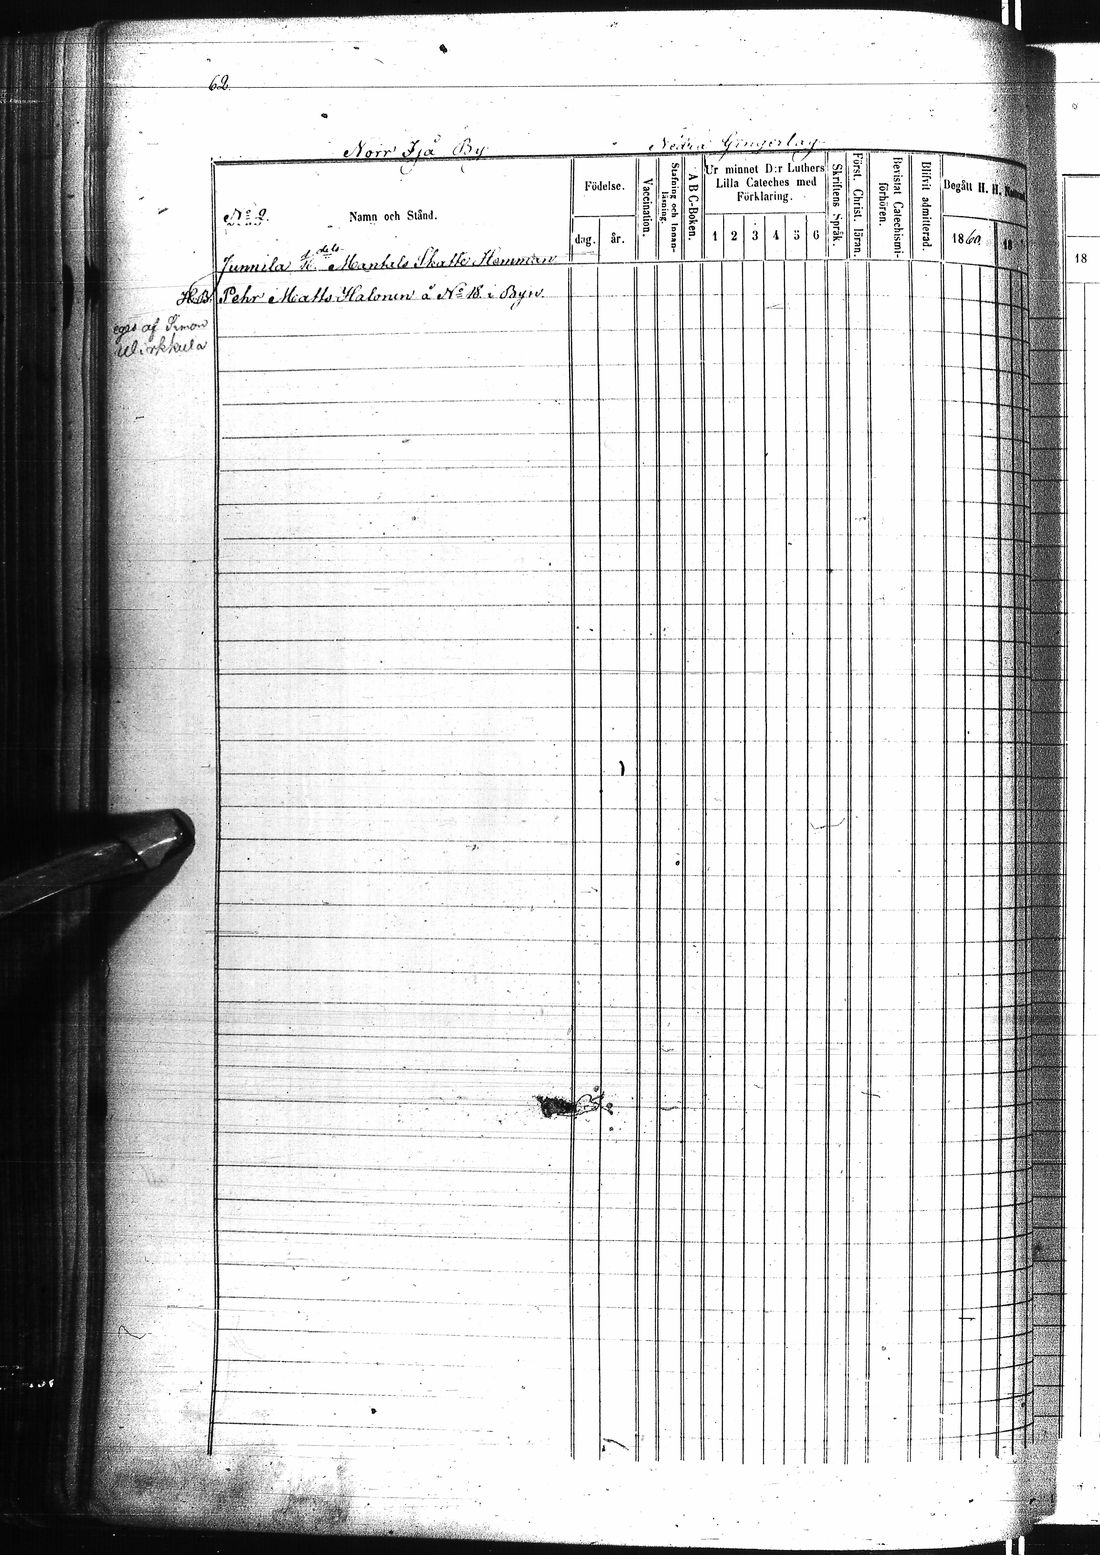 62.
Norr Ijå By
Nedra Gångerlag
No 2.
Namn och Stånd.
Födelse.
dag.
år.
Vaccination.
Stafning och Innan-läsning.
A B C-Boken.
Ur minnet D:r Luthers
Lilla Cateches med
Förklaring.
1 2 3 4 5 6
Skriftens Språk.
Först. Christ. läran.
Bevistat Catechismi-förhören.
Blifvit admitterad.
Begått H. H.
1860
18
18
Junnila dels Mantals Skatte Hemman
HB Pehr Matts. Halonen å No 18. i Byn.
eges af Simon
Wirkkula